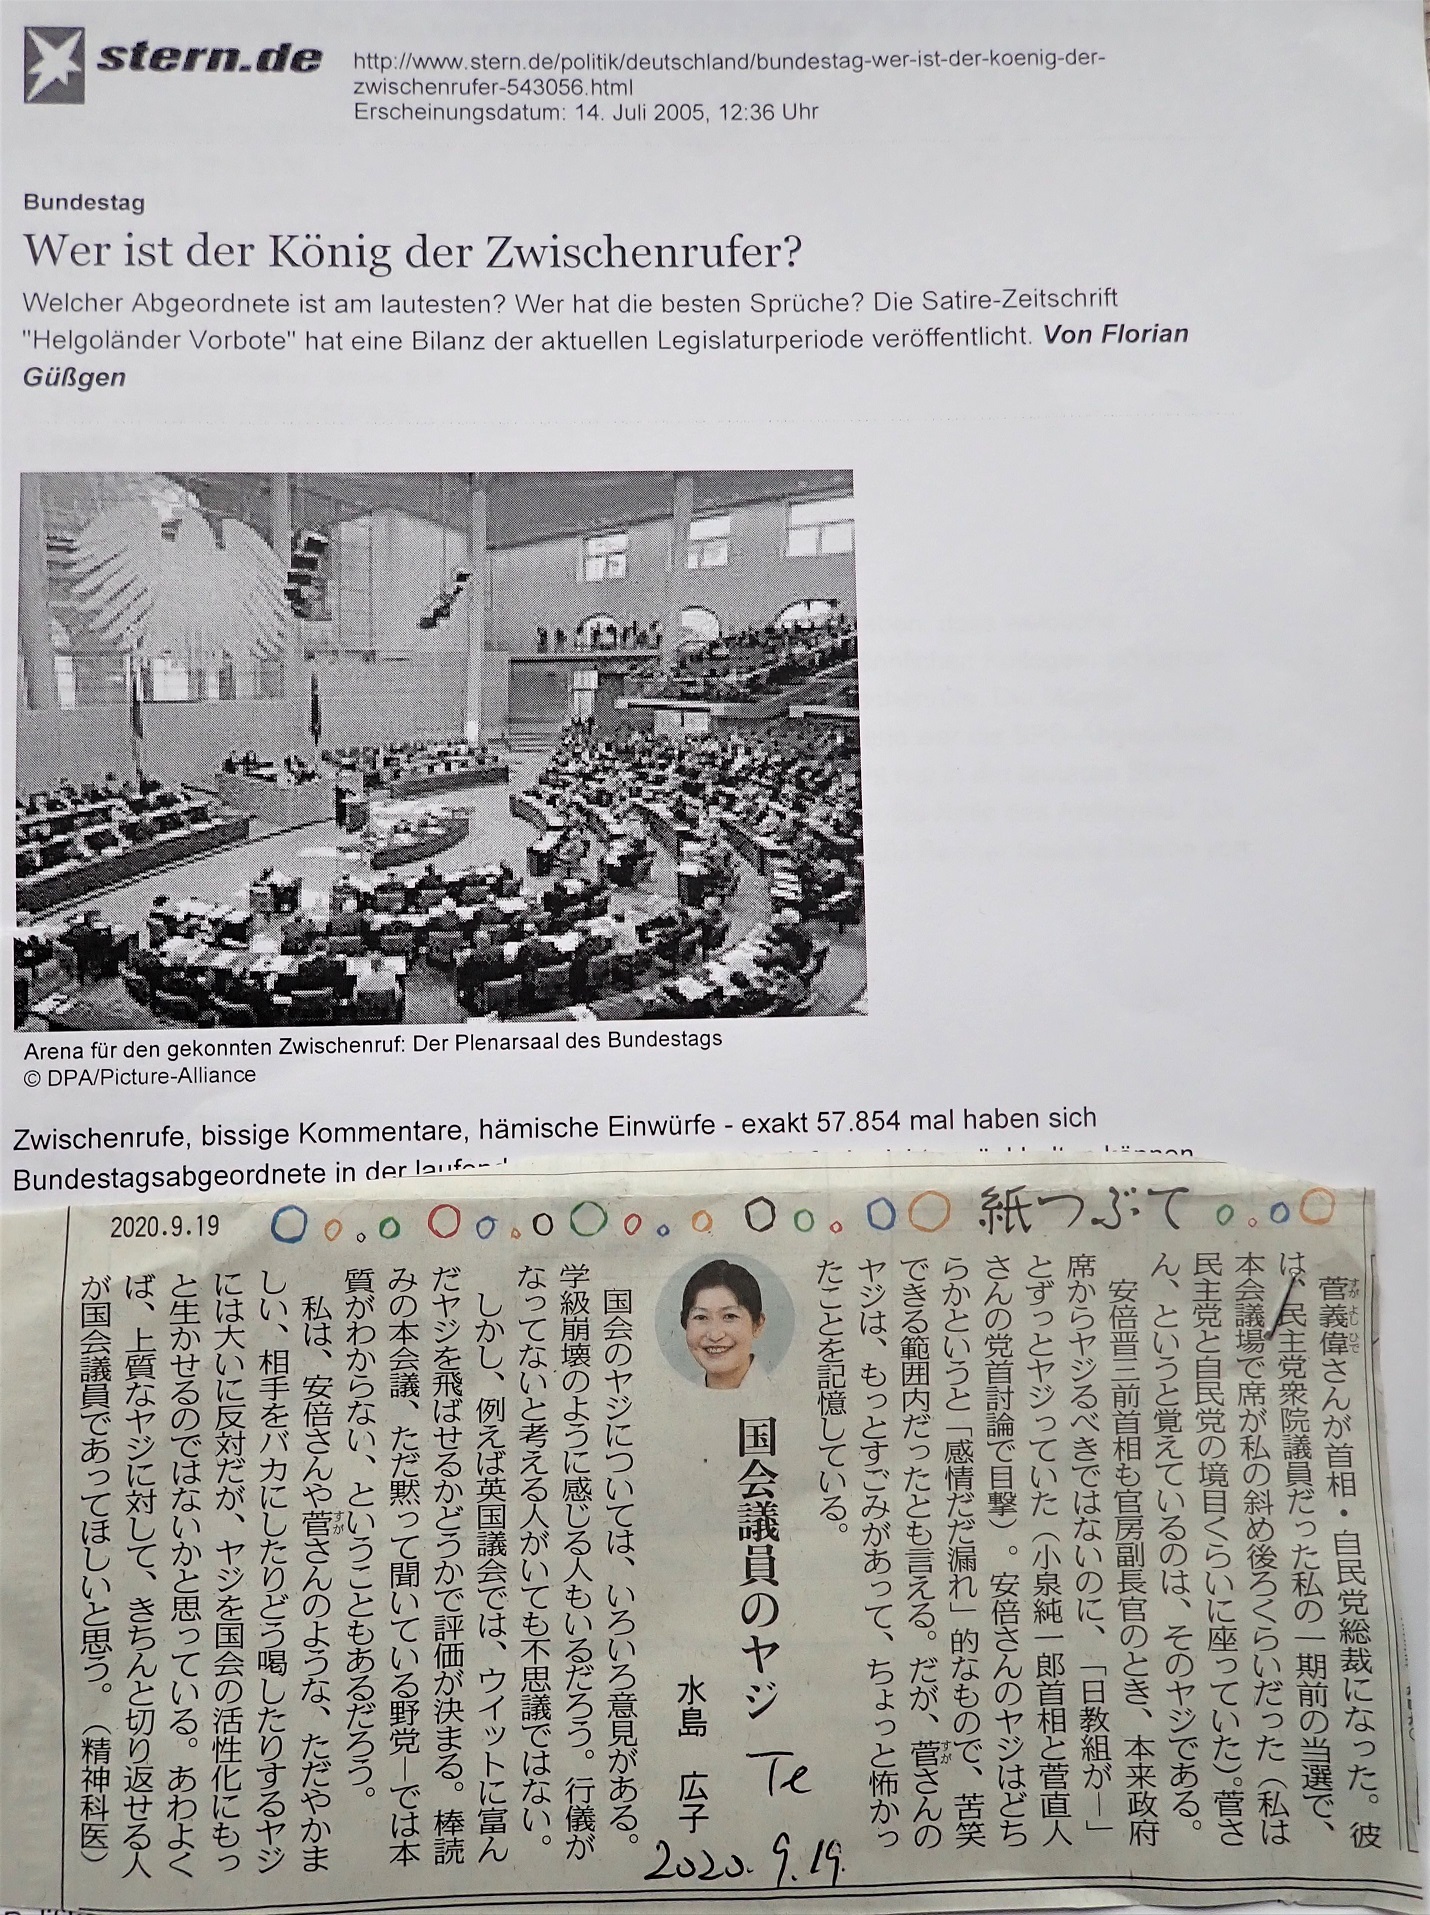 stern.de
http://www.stern.de/politik/deutschland/bundestag-wer-ist-der-koenig-der-
zwischenrufer-543056.html
Erscheinungsdatum: 14. Juli 2005, 12:36 Uhr
Bundestag
Wer ist der König der Zwischenrufer?
Welcher Abgeordnete ist am lautesten? Wer hat die besten Sprüche? Die Satire-Zeitschrift
"Helgoländer Vorbote" hat eine Bilanz der aktuellen Legislaturperiode veröffentlicht. Von Florian
Güßgen
Arena für den gekonnten Zwischenruf: Der Plenarsaal des Bundestags
© DPA/Picture-Alliance
Zwischenrufe, bissige Kommentare, hämische Einwürfe - exakt 57.854 mal haben sich
Bundestagsabgeordnete in der
2020.9.19
紙つぶて
菅義偉さんが首相・自民党総裁になった。彼
は、民主党衆院議員だった私の一期前の当選で、
本会議場で席が私の斜め後ろくらいだった（私は
民主党と自民党の境目くらいに座っていた）。菅さ
ん、というと覚えているのは、そのヤジである。
安倍晋三前首相も官房副長官のとき、本来政府
席からヤジるべきではないのに、「日教組が―」
とずっとヤジっていた（小泉純一郎首相と菅直人
さんの党首討論で目撃）。安倍さんのヤジはどち
らかというと「感情だだ漏れ」的なもので、苦笑
できる範囲内だったとも言える。だが、菅さんの
ヤジは、もっとすごみがあって、ちょっと怖かっ
たことを記憶している。
国会議員のヤジ
水島 広子
Te
2020.9.19.
国会のヤジについては、いろいろ意見がある。
学級崩壊のように感じる人もいるだろう。行儀が
なってないと考える人がいても不思議ではない。
しかし、例えば英国議会では、ウイットに富ん
だヤジを飛ばせるかどうかで評価が決まる。棒読
みの本会議、ただ黙って聞いている野党―では本
質がわからない、ということもあるだろう。
私は、安倍さんや菅さんのような、ただやかま
しい、相手をバカにしたりどう喝したりするヤジ
には大いに反対だが、ヤジを国会の活性化にもっ
と生かせるのではないかと思っている。あわよく
ば、上質なヤジに対して、きちんと切り返せる人
が国会議員であってほしいと思う。（精神科医）